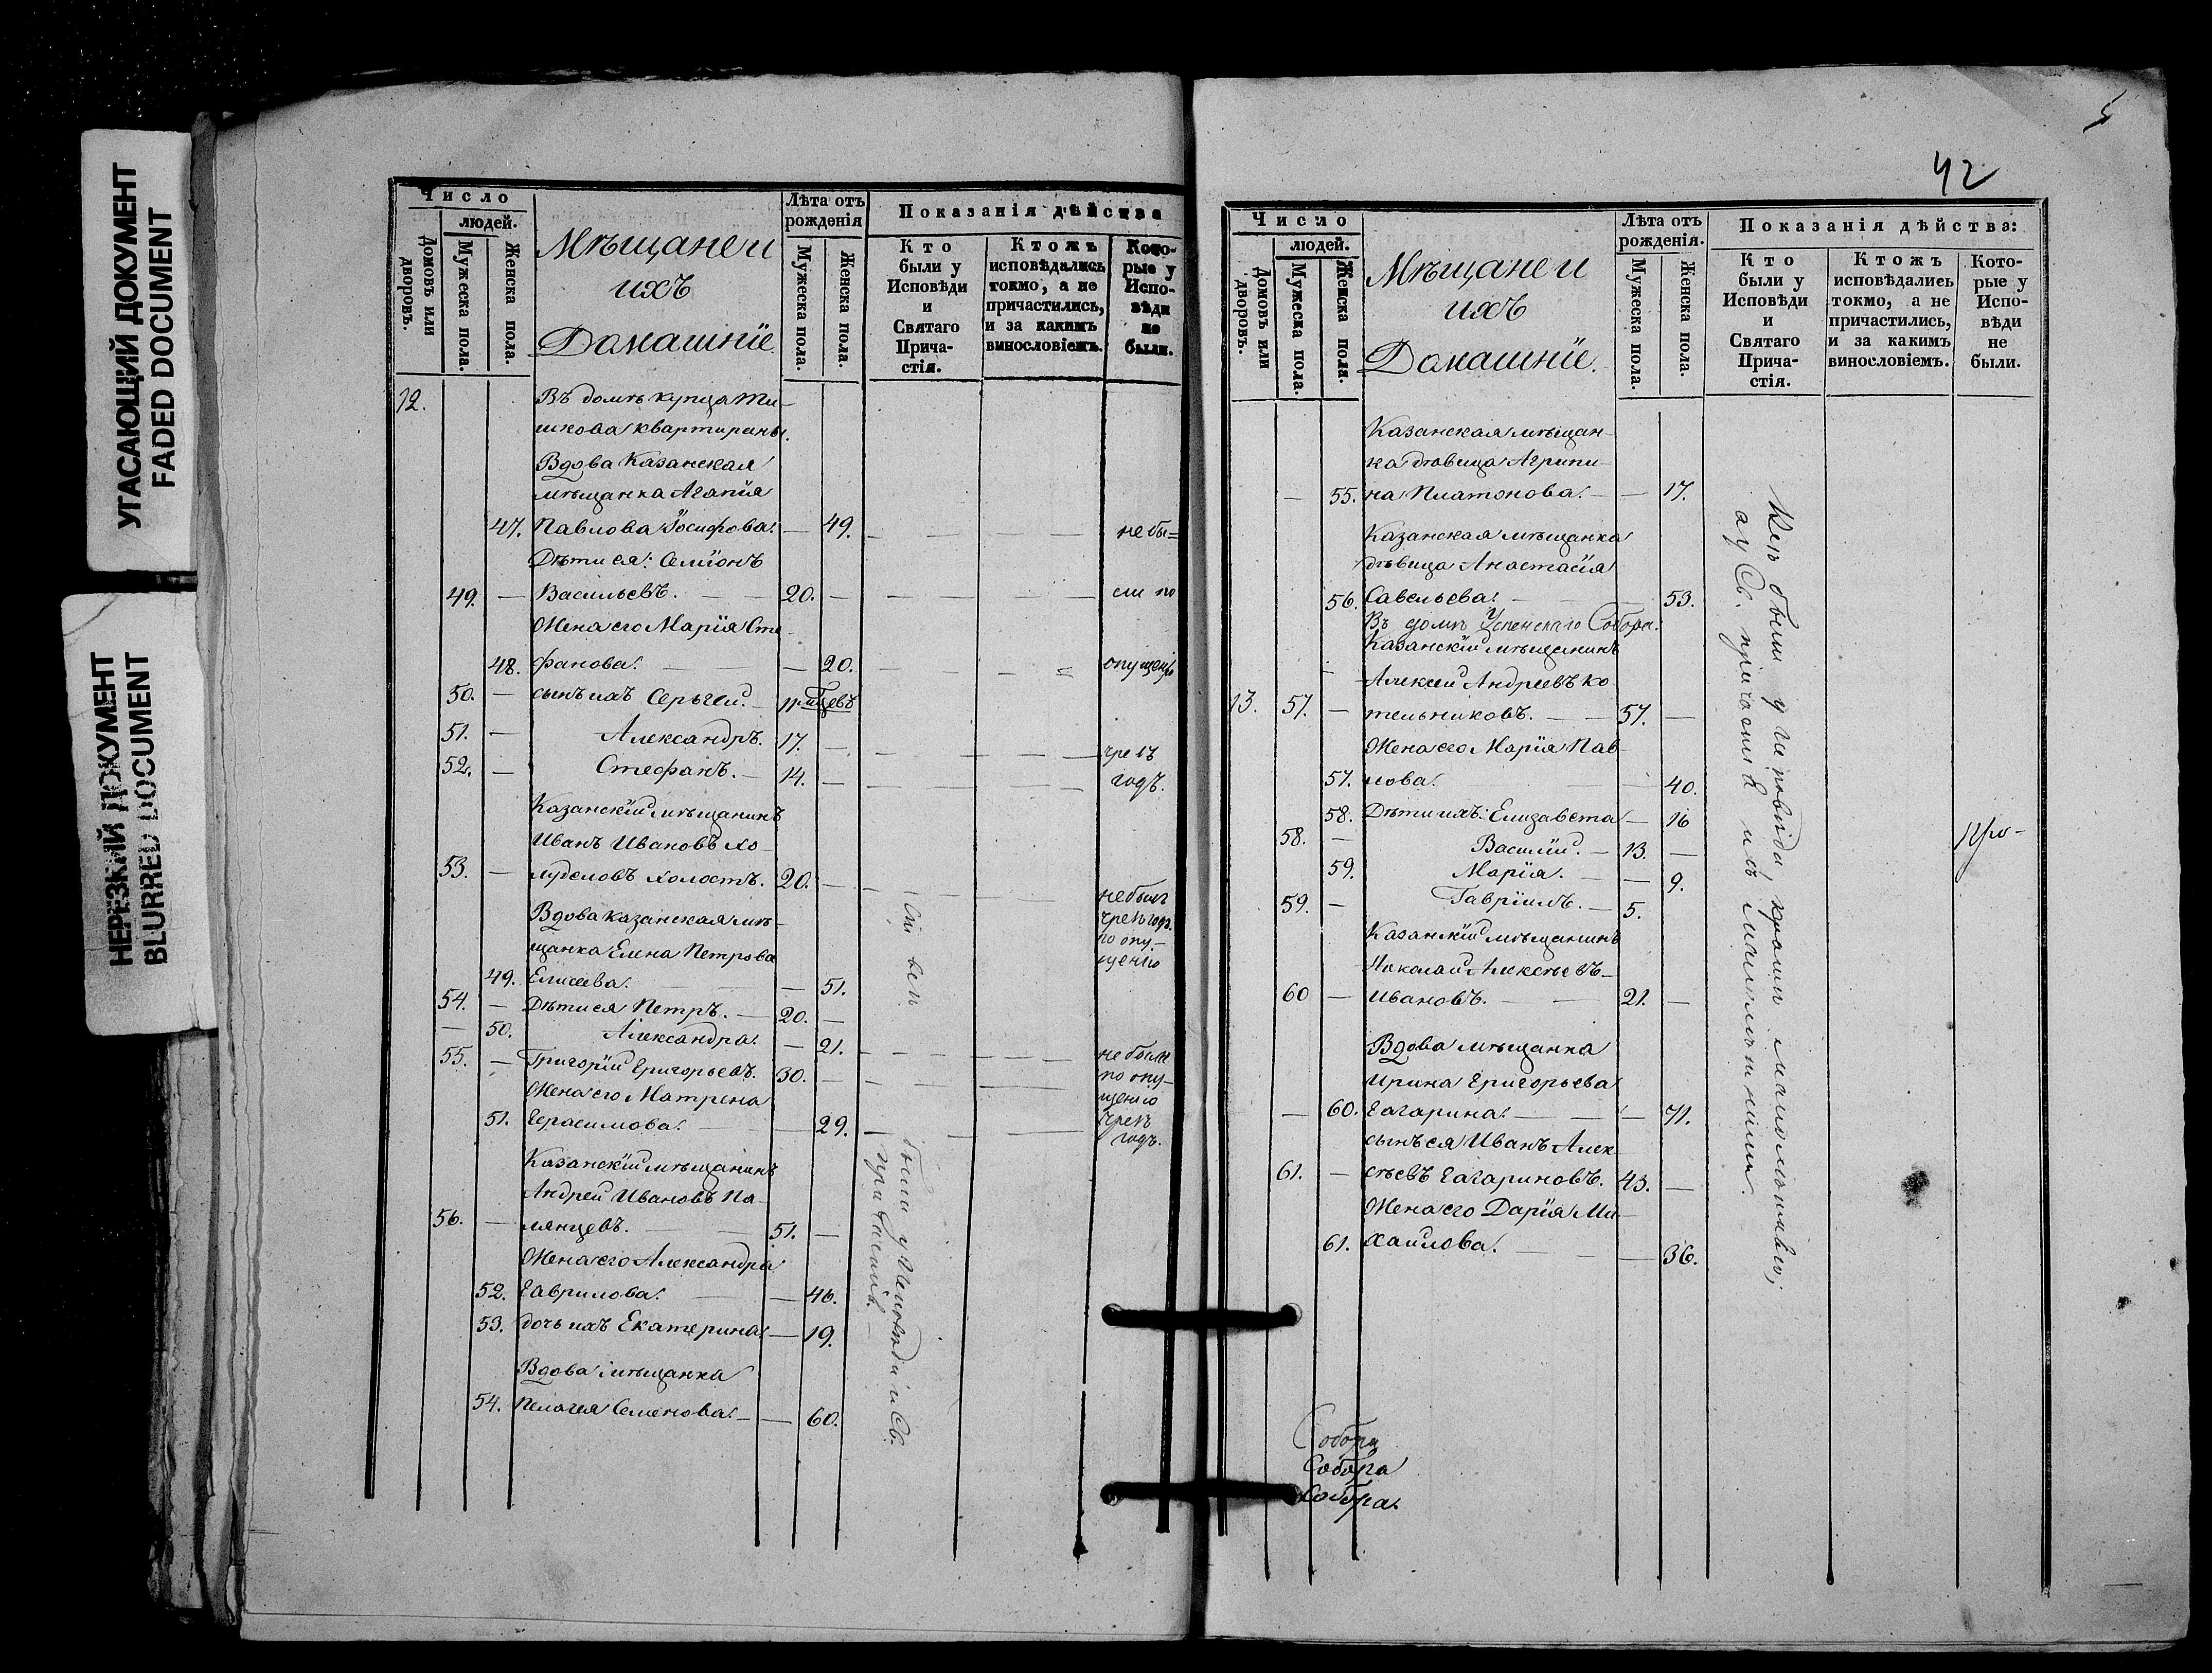 УГАСАЮЩИЙ ДОКУМЕНТ
FADED DOCUMENT
НЕРЕЗКИЙ ДОКУМЕНТ
BLURRED DOCUMENT
Число
людей.
Домовъ или дворовъ.
Мужеска пола.
Женска пола.
Мѣщане и
ихъ
Домашніе.
Лѣта отъ
рожденія
Мужеска пола.
Женска пола.
Показанія дѣйства
Кто
были у
Исповѣди
и
Святаго
Прича-
стія.
Ктожъ
исповѣдались
токмо, а не
причастились,
и за какимъ
винословіемъ.
Кото-
рые у
Испо-
вѣди
не
были.
12. Въ домѣ купца Ти-
шкова квартиранты.
Вдова Казанская
мѣщанка Агапія
47. Павлова Іосифова. — 49. не бы=
Дѣти ея: Семіонъ
49. — Васильевъ. 20. — ли по
Жена его Марія Сте-
48. фанова. — 20. опущенію
50. — сынъ ихъ Сергей. — 11 мѣсяцевъ
51. — Александръ. 17. — чрезъ
52. — Стефанъ. — 14. — годъ.
Казанскій мѣщанинъ
Иванъ Ивановъ Хо-
53. — холостъ. 20. —
не былъ
чрезъ годъ
по опу-
щенію
Вдова казанская мѣ-
щанка Елена Петрова
49. Елисеева. — 51.
54. — Дѣти ея Петръ. — 20. —
— 50. Александра. — 21.
55. — Григорій Григорьевъ. 30. —
не были
по опу-
щенію
чрезъ
годъ.
Жена его Матрена
51. Герасимова. — 29. —
Казанскій мѣщанинъ
Андрей Ивановъ По-
56. — лянцевъ. 51. —
Жена его Александра
52. Гаврилова. — 46.
53. дочь ихъ Екатерина. — 19.
Вдова мѣщанка
54. Пелагея Семенова. — — 60.
Сіи всѣ
были у Исповѣди и Св.
причастія. —
5
42
Число
людей.
Домовъ или дворовъ.
Мужеска пола.
Женска пола.
Мѣщане и
ихъ
Домашніе.
Лѣта отъ
рожденія.
Мужеска пола.
Женска пола.
Показанія дѣйства:
Кто
были у
Исповѣди
и
Святаго
Прича-
стія.
Ктожъ
исповѣдались
токмо, а не
причастились,
и за какимъ
винословіемъ.
Кото-
рые у
Испо-
вѣди
не
были.
Казанская мѣщан-
ка дѣвица Агрипи-
— 55. на Платонова. — — 17.
Казанская мѣщанка
дѣвица Анастасія
56. Савельева. 53.
Въ домѣ Успенскаго Собора.
Казанскій мѣщанинъ
Алексей Андреевъ Ко-
13. 57. — тельниковъ. — — 57. —
Жена его Марія Пав-
57. лова. — 40.
58. Дѣти ихъ: Елизавета — 16
58. — Василій. — 13. —
59. Марія. — 9.
59. — Гавріилъ. — 5.
Казанскій мѣщанинъ
Николай Алексѣевъ-
60 — Ивановъ. 21. —
Вдова мѣщанка
Ирина Григорьева
— 60. Гагарина. — — 71.
сынъ ея Иванъ Алек-
61. — сѣевъ Гагариновъ. 43. —
Жена его Дарія Ми-
61. хаилова. — 36.
Всѣ были у исповѣди кромѣ
а у Св. причастія и съ
Про-
Собора
Собора
Собора.